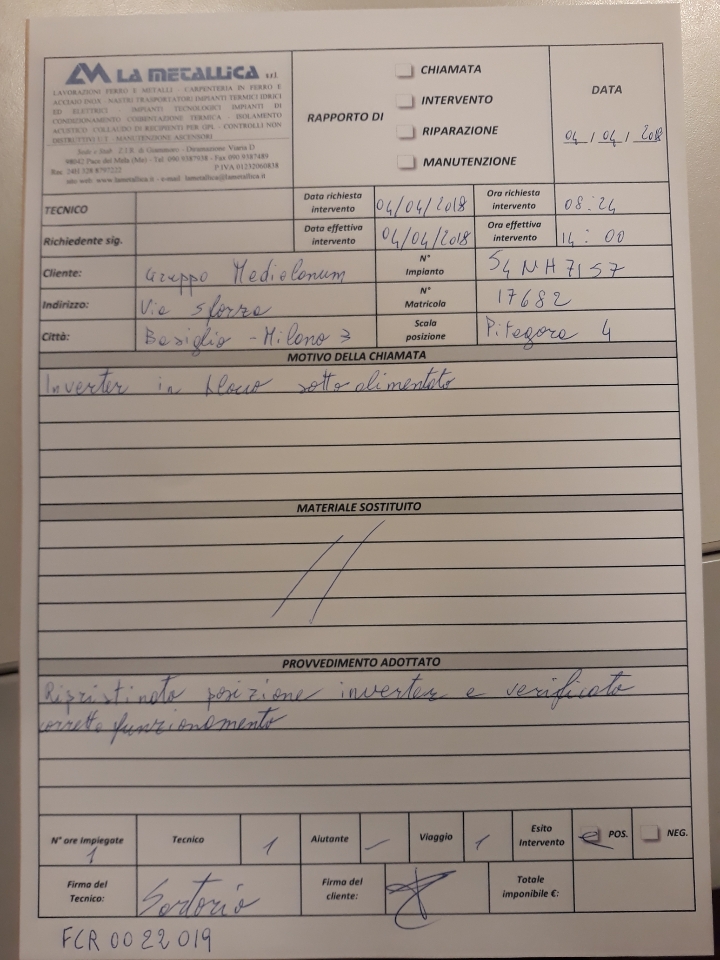 LA METALLICA s.r.l.
LAVORAZIONI FERRO E METALLI - CARPENTERIA IN FERRO E
ACCIAIO INOX - NASTRI TRASPORTATORI IMPIANTI TERMICI IDRICI
ED ELETTRICI - IMPIANTI TECNOLOGICI IMPIANTI DI
CONDIZIONAMENTO COIBENTAZIONE TERMICA - ISOLAMENTO
ACUSTICO COLLAUDO DI RECIPIENTI PER GPL - CONTROLLI NON
DISTRUTTIVI U.T. - MANUTENZIONE ASCENSORI
Sede e Stab. Z.I.R. di Giammoro - Diramazione Viaria D
98042 Pace del Mela (Me) - Tel. 090.9387938 - Fax 090.9387489
P.IVA 01232060838
sito web: www.lametallica.it - e-mail: lametallica@lametallica.it
RAPPORTO DI
CHIAMATA
INTERVENTO
RIPARAZIONE
MANUTENZIONE
DATA
04/04/2018
TECNICO
Data richiesta intervento 04/04/2018
Ora richiesta intervento 08:24
Richiedente sig.
Data effettiva intervento 04/04/2018
Ora effettiva intervento 14:00
Cliente: Gruppo Mediolanum
N° Impianto S4NH7157
Indirizzo: Via sforza
N° Matricola 17682
Città: Basiglio - Milano 3
Scala posizione Pitagora 4
MOTIVO DELLA CHIAMATA
Inverter in blocco sotto alimentato
MATERIALE SOSTITUITO
PROVVEDIMENTO ADOTTATO
Ripristinato posizione inverter e verificato
corretto funzionamento
N° ore Impiegate 1
Tecnico 1
Aiutante –
Viaggio 1
Esito Intervento
POS.
NEG.
Firma del Tecnico: Sartorio
Firma del cliente:
Totale imponibile €:
FCR 0022019